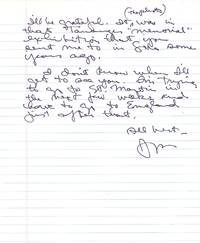 (register)
I'll be grateful. It was in
that "memorial"
exhibition that you
sent me to in some
years ago.
I don't know when I'll
get to see you. I'm trying
to go to St. Martin in
the next few weeks and
have to go to England
just after that.
All best –